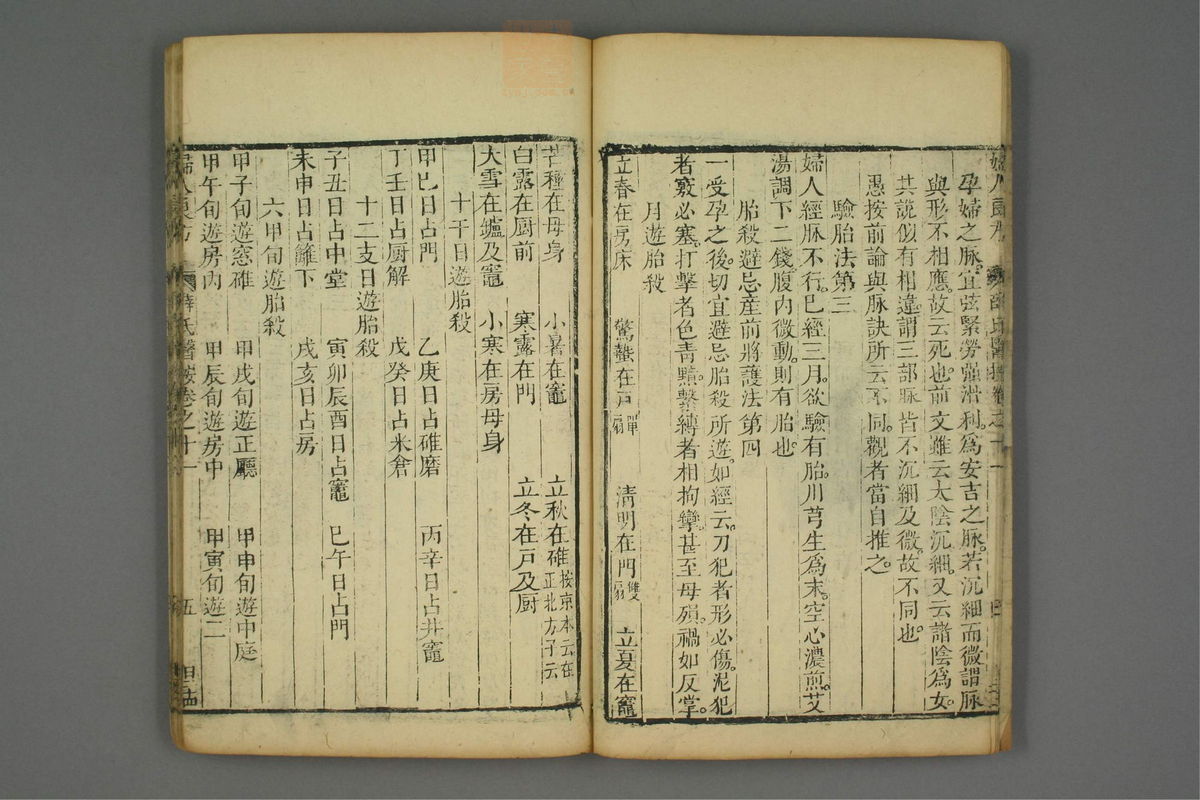 孕婦之脉宜弦緊勞强滑利爲安吉之脉若沉細而微謂脉
與形不相應故云死也前文雖云太陰沉細又云諸陰爲女
其說似有相違謂三部脉皆不沉細及微故不同也
愚按前論與脉訣所云不同觀者當自推之
驗胎法第三
婦人經脉不行已經三月欲驗有胎川芎生爲末空心濃煎艾
湯調下二錢腹内微動則有胎也
胎殺避忌産前將護法第四
一受孕之後切宜避忌胎殺所遊如經云刀犯者形必傷泥犯
者竅必塞打擊者色青黯繫縛者相拘攣甚至母殞禍如反掌
月遊胎殺
立春在房床 驚蟄在戸單扇 清明在門雙扇 立夏在竈
芒種在母身 小暑在竈 立秋在碓按京本云在正北方子云
白露在厨前 寒露在門 立冬在戸及厨
大雪在鑪及竈 小寒在房母身
十干日遊胎殺
甲巳日占門 乙庚日占碓磨 丙辛日占井竈
丁壬日占厨解 戊癸日占米倉
十二支日遊胎殺
子丑日占中堂 寅卯辰酉日占竈 巳午日占門
未申日占籬下 戌亥日占房
六甲旬遊胎殺
甲子旬遊窓碓 甲戌旬遊正廳 甲申旬遊中庭
甲午旬遊房内 甲辰旬遊房中 甲寅旬遊二
婦人良方 薛氏醫按卷之十一 五